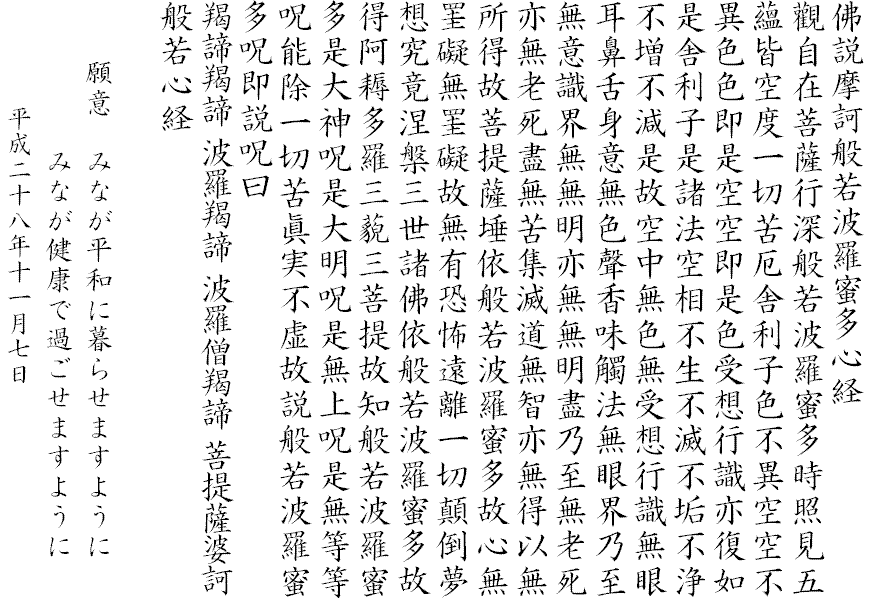 佛説摩訶般若波羅蜜多心経
觀自在菩薩行深般若波羅蜜多時照見五
蘊皆空度一切苦厄舎利子色不異空空不
異色色即是空空即是色受想行識亦復如
是舎利子是諸法空相不生不滅不垢不浄
不増不減是故空中無色無受想行識無眼
耳鼻舌身意無色聲香味觸法無眼界乃至
無意識界無無明亦無無明盡乃至無老死
亦無老死盡無苦集滅道無智亦無得以無
所得故菩提薩埵依般若波羅蜜多故心無
罣礙無罣礙故無有恐怖遠離一切顛倒夢
想究竟涅槃三世諸佛依般若波羅蜜多故
得阿耨多羅三藐三菩提故知般若波羅蜜
多是大神呪是大明呪是無上呪是無等等
呪能除一切苦眞実不虚故説般若波羅蜜
多呪即説呪曰
羯諦羯諦 波羅羯諦 波羅僧羯諦 菩提薩婆訶
般若心経
願意 みなが平和に暮らせますように
みなが健康で過ごせますように
平成二十八年十一月七日